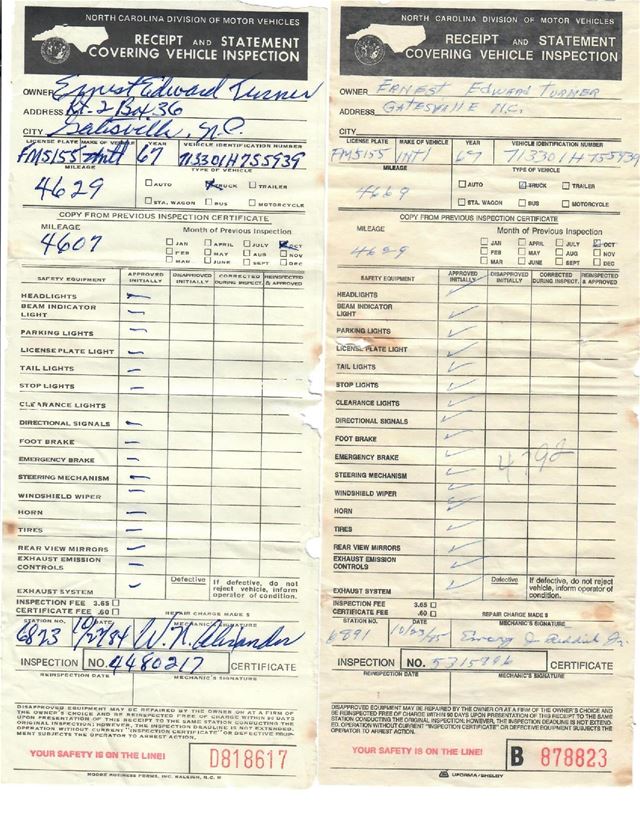 NORTH CAROLINA DIVISION OF MOTOR VEHICLES
RECEIPT AND STATEMENT
COVERING VEHICLE INSPECTION
OWNER Ernest Edward Turner
ADDRESS Rt. 2 Box 36
CITY Gatesville, N.C.
LICENSE PLATE MAKE OF VEHICLE YEAR VEHICLE IDENTIFICATION NUMBER
FM5155 Intl 67 713301H755939
MILEAGE TYPE OF VEHICLE
4629 AUTO TRUCK TRAILER
STA. WAGON BUS MOTORCYCLE
COPY FROM PREVIOUS INSPECTION CERTIFICATE
MILEAGE Month of Previous Inspection
4607 JAN APRIL JULY OCT
FEB MAY AUG NOV
MAR JUNE SEPT DEC
SAFETY EQUIPMENT APPROVED INITIALLY DISAPPROVED INITIALLY CORRECTED DURING INSPECT. REINSPECTED & APPROVED
HEADLIGHTS
BEAM INDICATOR
LIGHT
PARKING LIGHTS
LICENSE PLATE LIGHT
TAIL LIGHTS
STOP LIGHTS
CLEARANCE LIGHTS
DIRECTIONAL SIGNALS
FOOT BRAKE
EMERGENCY BRAKE
STEERING MECHANISM
WINDSHIELD WIPER
HORN
TIRES
REAR VIEW MIRRORS
EXHAUST EMISSION
CONTROLS
EXHAUST SYSTEM Defective If defective, do not reject vehicle, inform operator of condition.
INSPECTION FEE 3.65
CERTIFICATE FEE .60 REPAIR CHARGE MADE $
STATION NO. MECHANIC'S SIGNATURE
6823 10/27/84 W. N. Alexander
INSPECTION NO. 4480217 CERTIFICATE
REINSPECTION DATE MECHANIC'S SIGNATURE
DISAPPROVED EQUIPMENT MAY BE REPAIRED BY THE OWNER OR AT A FIRM OF
THE OWNER'S CHOICE AND BE REINSPECTED FREE OF CHARGE WITHIN 90 DAYS
UPON PRESENTATION OF THIS RECEIPT TO THE SAME STATION CONDUCTING THE
ORIGINAL INSPECTION; HOWEVER, THE INSPECTION DEADLINE IS NOT EXTENDED.
OPERATION WITHOUT CURRENT "INSPECTION CERTIFICATE" OR DEFECTIVE EQUIP-
MENT SUBJECTS THE OPERATOR TO ARREST ACTION.
YOUR SAFETY IS ON THE LINE! D818617
MOORE BUSINESS FORMS, INC. RALEIGH, N.C.
NORTH CAROLINA DIVISION OF MOTOR VEHICLES
RECEIPT AND STATEMENT
COVERING VEHICLE INSPECTION
OWNER ERNEST EDWARD TURNER
ADDRESS GATESVILLE N.C.
CITY
LICENSE PLATE MAKE OF VEHICLE YEAR VEHICLE IDENTIFICATION NUMBER
FM5155 INTL 67 713301H755939
MILEAGE TYPE OF VEHICLE
4669 AUTO TRUCK TRAILER
STA. WAGON BUS MOTORCYCLE
COPY FROM PREVIOUS INSPECTION CERTIFICATE
MILEAGE Month of Previous Inspection
4629 JAN APRIL JULY OCT
FEB MAY AUG NOV
MAR JUNE SEPT DEC
SAFETY EQUIPMENT APPROVED INITIALLY DISAPPROVED INITIALLY CORRECTED DURING INSPECT. REINSPECTED & APPROVED
HEADLIGHTS
BEAM INDICATOR
LIGHT
PARKING LIGHTS
LICENSE PLATE LIGHT
TAIL LIGHTS
STOP LIGHTS
CLEARANCE LIGHTS
DIRECTIONAL SIGNALS
FOOT BRAKE
EMERGENCY BRAKE 4792
STEERING MECHANISM
WINDSHIELD WIPER
HORN
TIRES
REAR VIEW MIRRORS
EXHAUST EMISSION
CONTROLS
EXHAUST SYSTEM Defective If defective, do not reject vehicle, inform operator of condition.
INSPECTION FEE 3.65
CERTIFICATE FEE .60 REPAIR CHARGE MADE $
STATION NO. MECHANIC'S SIGNATURE
6891 10/23/85 Jr.
INSPECTION NO. CERTIFICATE
REINSPECTION DATE MECHANIC'S SIGNATURE
DISAPPROVED EQUIPMENT MAY BE REPAIRED BY THE OWNER OR AT A FIRM OF THE OWNER'S CHOICE AND
BE REINSPECTED FREE OF CHARGE WITHIN 90 DAYS UPON PRESENTATION OF THIS RECEIPT TO THE SAME
STATION CONDUCTING THE ORIGINAL INSPECTION; HOWEVER, THE INSPECTION DEADLINE IS NOT EXTEND-
ED. OPERATION WITHOUT CURRENT "INSPECTION CERTIFICATE" OR DEFECTIVE EQUIPMENT SUBJECTS THE
OPERATOR TO ARREST ACTION.
YOUR SAFETY IS ON THE LINE! B 878823
UFORMA/SHELBY